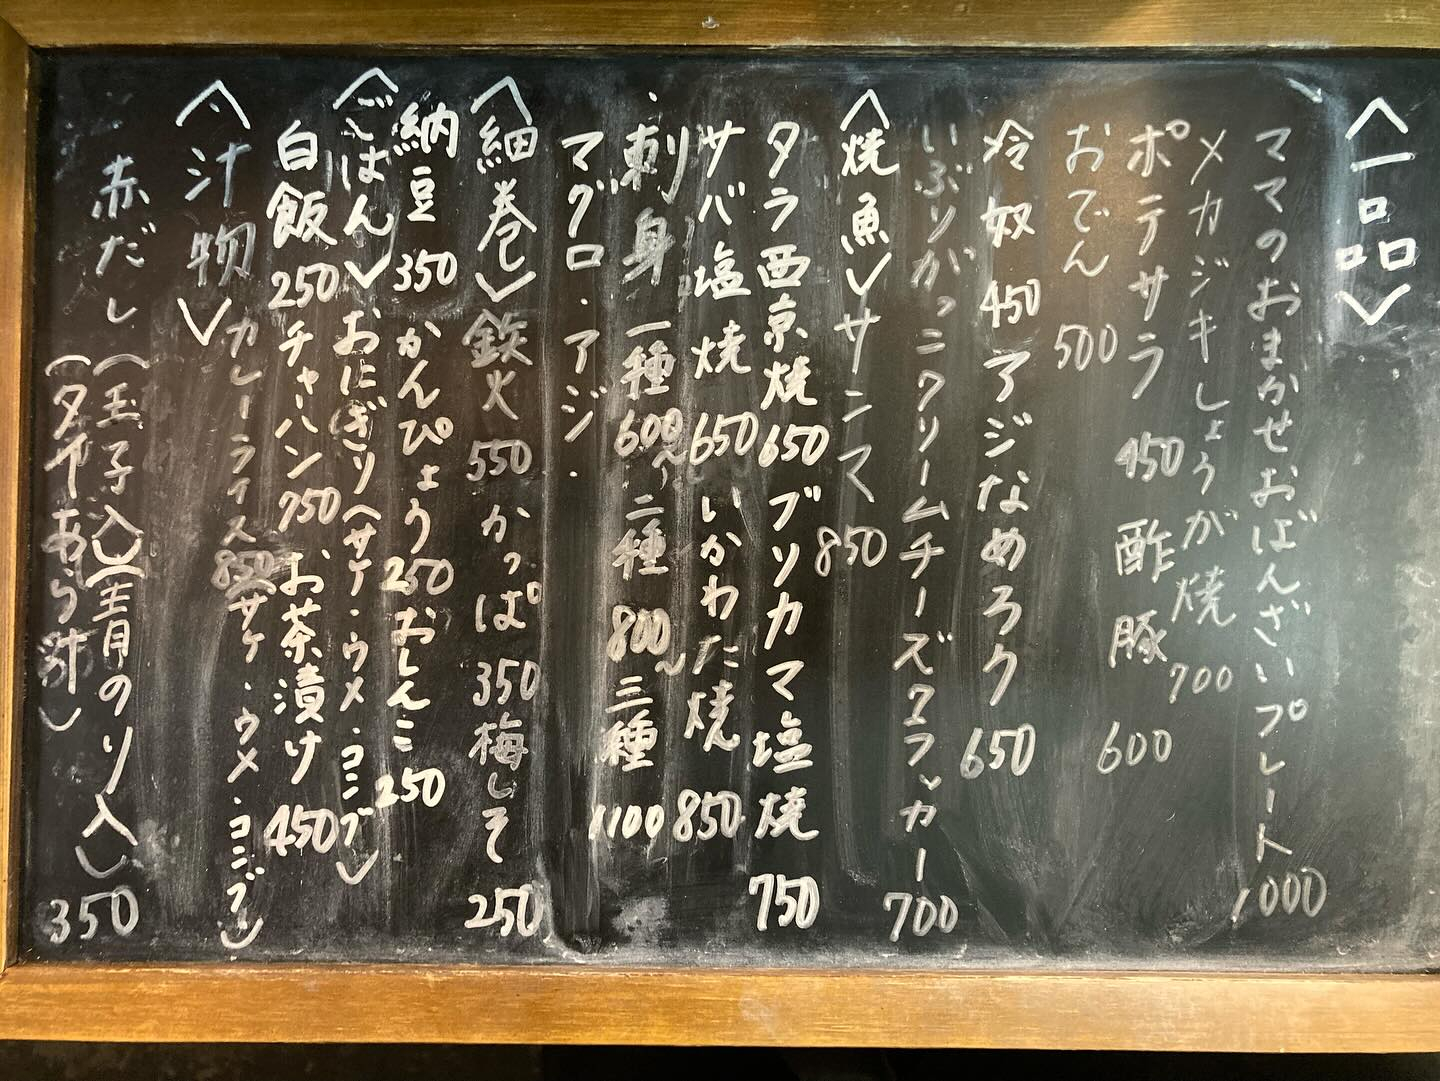 〈一品〉
ママのおまかせおばんざいプレート 1000
メカジキしょうが焼 700
ポテサラ 450 酢豚 600
おでん 500
冷奴 450 アジなめろう 650
いぶりがっこクリームチーズクラッカー 700
〈焼魚〉サンマ 850
タラ西京焼 650 ブリカマ塩焼 750
サバ塩焼 650 いかわた焼 850
刺身 一種 600~ 二種 800~ 三種 1100
マグロ・アジ・
〈細巻〉鉄火 550 かっぱ 350 梅しそ 250
納豆 350 かんぴょう 250 おしんこ 250
〈ごはん〉おにぎり(サケ・ウメ・コンブ)
白飯 250 チャーハン 750 お茶漬け 450
カレーライス 850 サケ・ウメ・コンブ)
〈汁物〉
赤だし(玉子入)(青のり入)
350